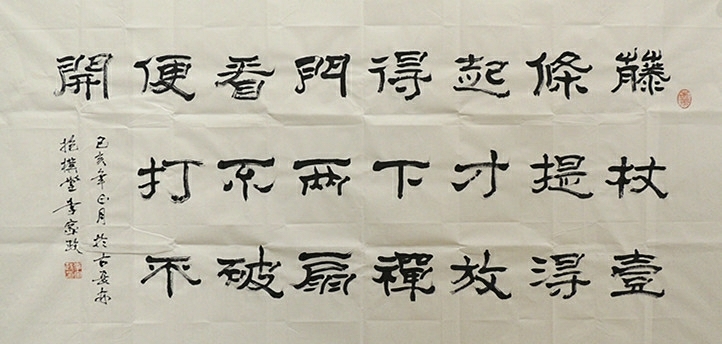 藤杖壹
條提得
起才放
得下禪
門兩扇
看不破
便打不
開
己亥年正月於古
抱樸堂李家政